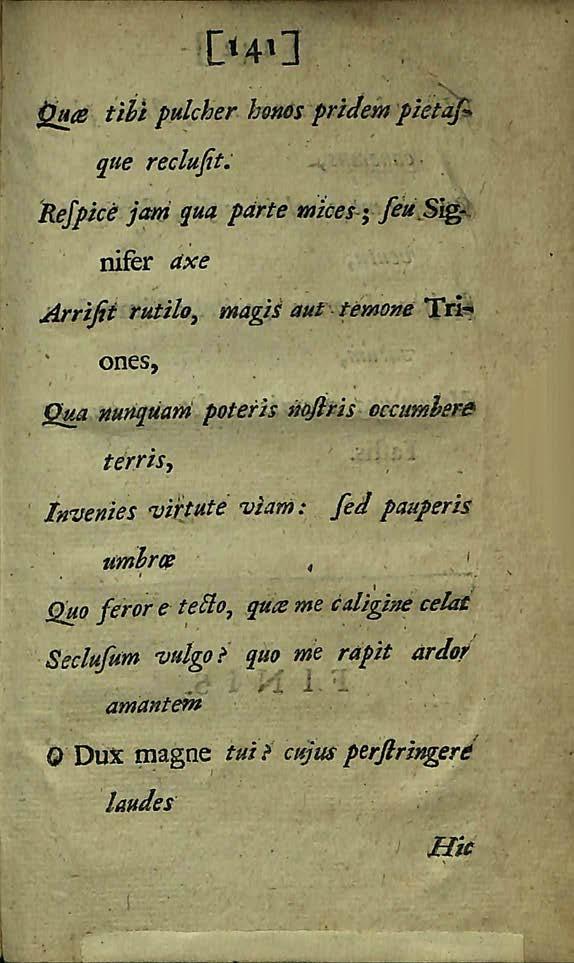 [141]
Quæ tibi pulcher honos pridem pietaſ-
que recluſit.
Reſpice jam qua parte mices; ſeu Sig-
nifer axe
Arriſit rutilo, magis aut temone Tri-
ones,
Qua nunquam poteris noſtris occumbere
terris,
Invenies virtute viam: ſed pauperis
umbræ
Quo feror e tecto, quæ me caligine celat
Secluſum vulgo? quo me rapit ardor
amantem
O Dux magne tui? cujus perſtringere
laudes
Hic